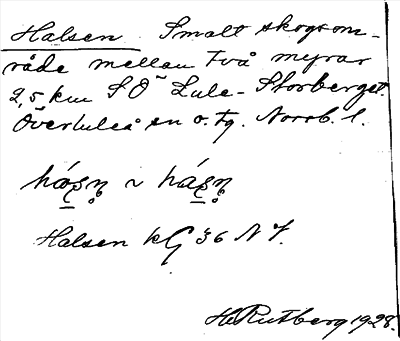 Halsen. Smalt skogsom-
råde mellan två myrar
2,5 km SÖ Lule-Storberget.
Överluleå sn o. tg. Norrb. l.
Halsen kG 36 NV.
H. Rutberg 1928.